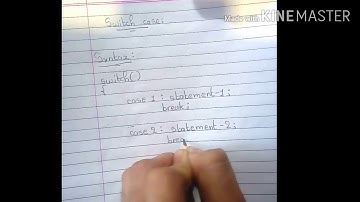 Made with
KINEMASTER
Switch case:
Syntax:
switch()
{
case 1 : statement-1;
break;
case 2 : statement-2;
brea